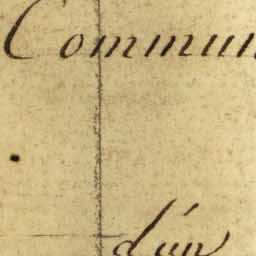 Commun
d'un